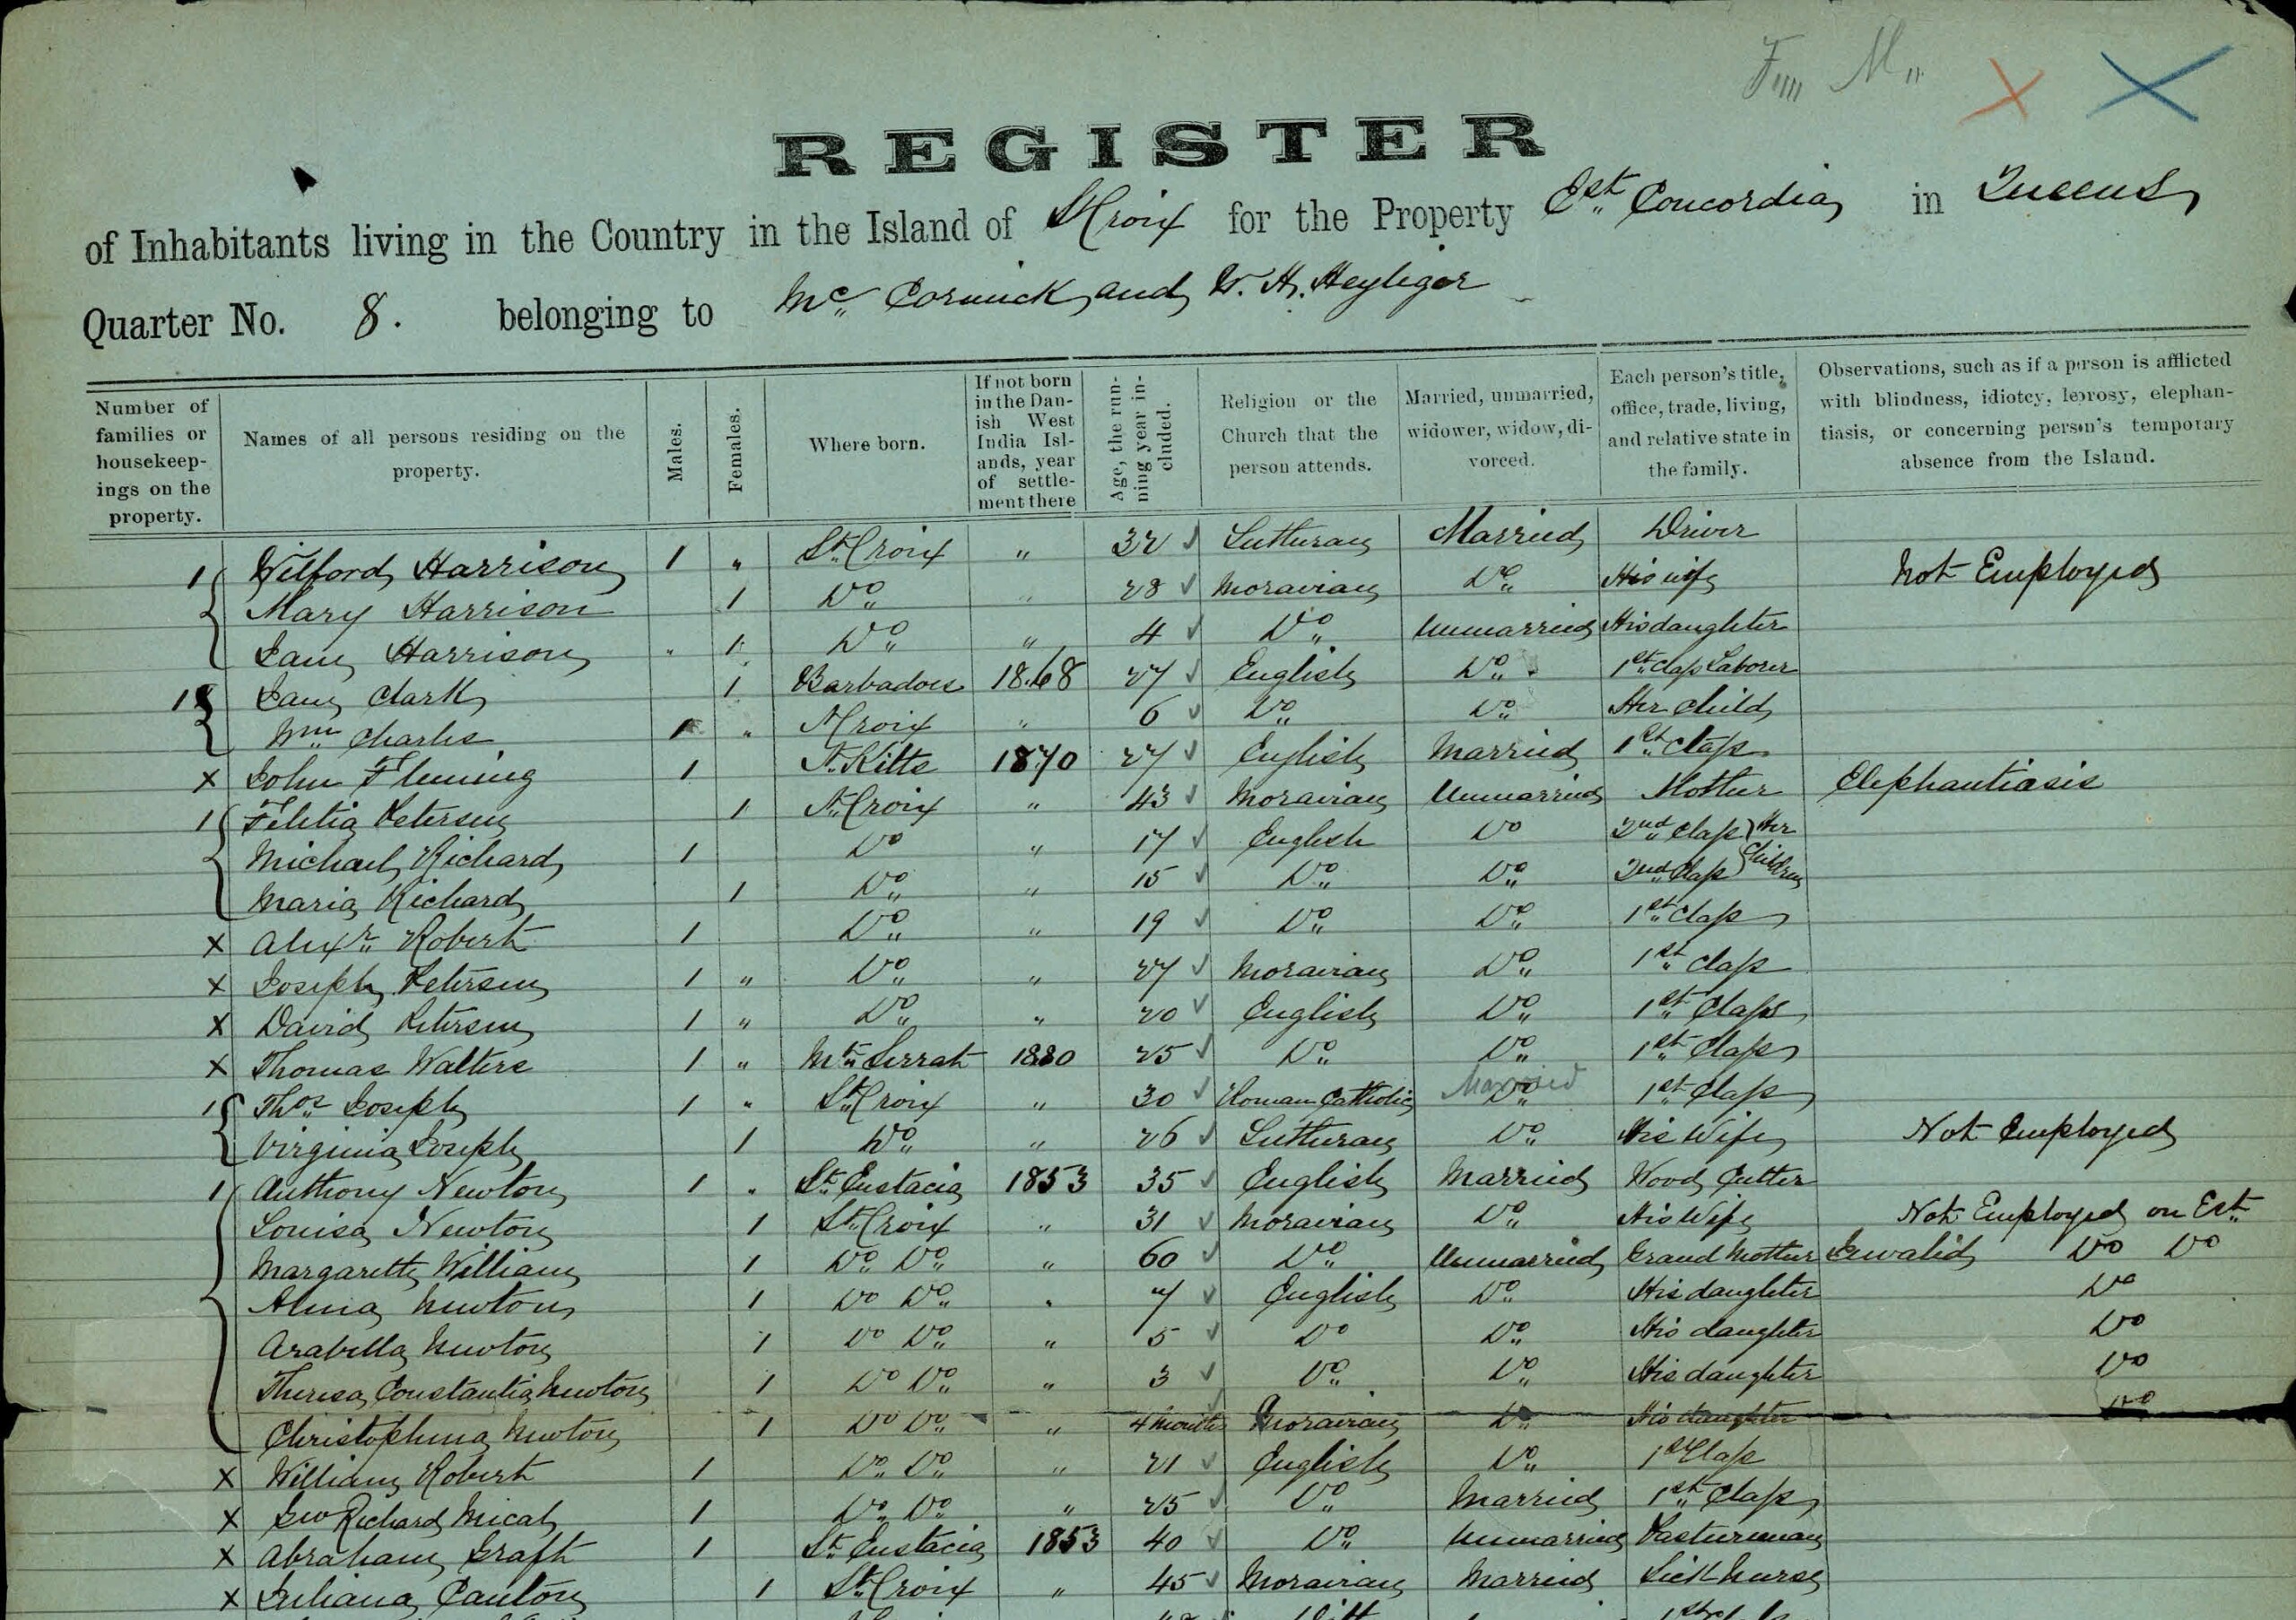 F,,,, M,,
REGISTER
of Inhabitants living in the Country in the Island of St Croix for the Property Est,, Concordia in Queens
Quarter No. 8. belonging to Mc,, Cormick and W. H. Heyliger
Number of families or housekeepings on the property. | Names of all persons residing on the property. | Males. | Females. | Where born. | If not born in the Danish West India Islands, year of settlement there | Age, the running year included. | Religion or the Church that the person attends. | Married, unmarried, widower, widow, divorced. | Each person's title, office, trade, living, and relative state in the family. | Observations, such as if a person is afflicted with blindness, idiotcy, leprosy, elephantiasis, or concerning person's temporary absence from the Island.
1 Wilford Harrison 1 " St,, Croix " 32 ✓ Lutheran Married Driver
Mary Harrison 1 Do,, " 28 ✓ Moravian Do,, His wife Not Employed
Jane Harrison " 1 Do,, " 4 ✓ Do,, Unmarried His daughter
1 Jane Clark 1 Barbadoes 1868 27 ✓ English Do,, 1st,, Class Laborer
Wm,, Charles 1 " St Croix " 6 ✓ Do,, Do,, Her Child
x John Fleming 1 St,, Kitts 1870 27 ✓ English Married 1st,, Class
1 Felitia Petersen 1 St,, Croix " 43 ✓ Moravian Unmarried Mother Elephantiasis
Michael Richard 1 Do " 17 ✓ English Do 2nd,, Class } Her
Maria Richard 1 Do,, " 15 ✓ Do,, Do,, 2nd,, Class } Children
x Alexr,, Robert 1 Do,, " 19 ✓ Do,, Do,, 1st,, Class
x Joseph Petersen 1 " Do,, " 27 ✓ Moravian Do,, 1st,, Class
x David Petersen 1 " Do,, " 20 ✓ English Do,, 1st,, Class
x Thomas Walters 1 " Mt,, Serrat 1880 25 ✓ Do,, Do,, 1st,, Class
1 Thos,, Joseph 1 " St,, Croix " 30 ✓ Roman Catholic Do,, Married 1st,, Class
Virginia Joseph 1 Do,, " 26 ✓ Lutheran Do,, His Wife Not Employed
1 Anthony Newton 1 " St,, Eustacia 1853 35 ✓ English Married Wood Cutter
Louisa Newton 1 St,, Croix " 31 ✓ Moravian Do,, His Wife Not Employed on Est,,
Margarette William 1 Do,, Do,, " 60 ✓ Do,, Unmarried Grand Mother Invalid Do Do
Alma Newton 1 Do Do,, " 7 ✓ English Do,, His daughter Do
Arabella Newton 1 Do Do,, " 5 ✓ Do Do,, His daughter Do
Theresa Constantia Newton 1 Do Do,, " 3 ✓ Do,, Do,, His daughter Do
Christophina Newton 1 Do Do,, " 4 Months Moravian Do,, His daughter Do
x William Robert 1 Do,, Do,, " 21 ✓ English Do,, 1st Class
x Geo Richard Micah 1 Do,, Do,, " 25 ✓ Do,, Married 1st,, Class
x Abraham Graft 1 St,, Eustacia 1853 40 ✓ Do,, Unmarried Pastureman
x Juliana Canton 1 St,, Croix " 45 ✓ Moravian Married Sick Nurse